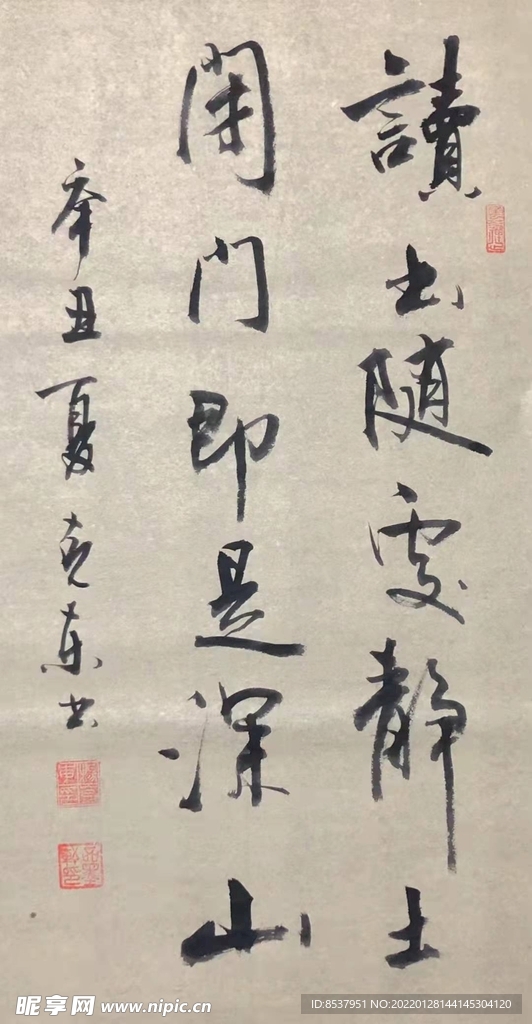 讀書随處静土
閉門即是深山
辛丑夏克东書
昵享网 www.nipic.cn
ID:8537951 NO:20220128144145304120